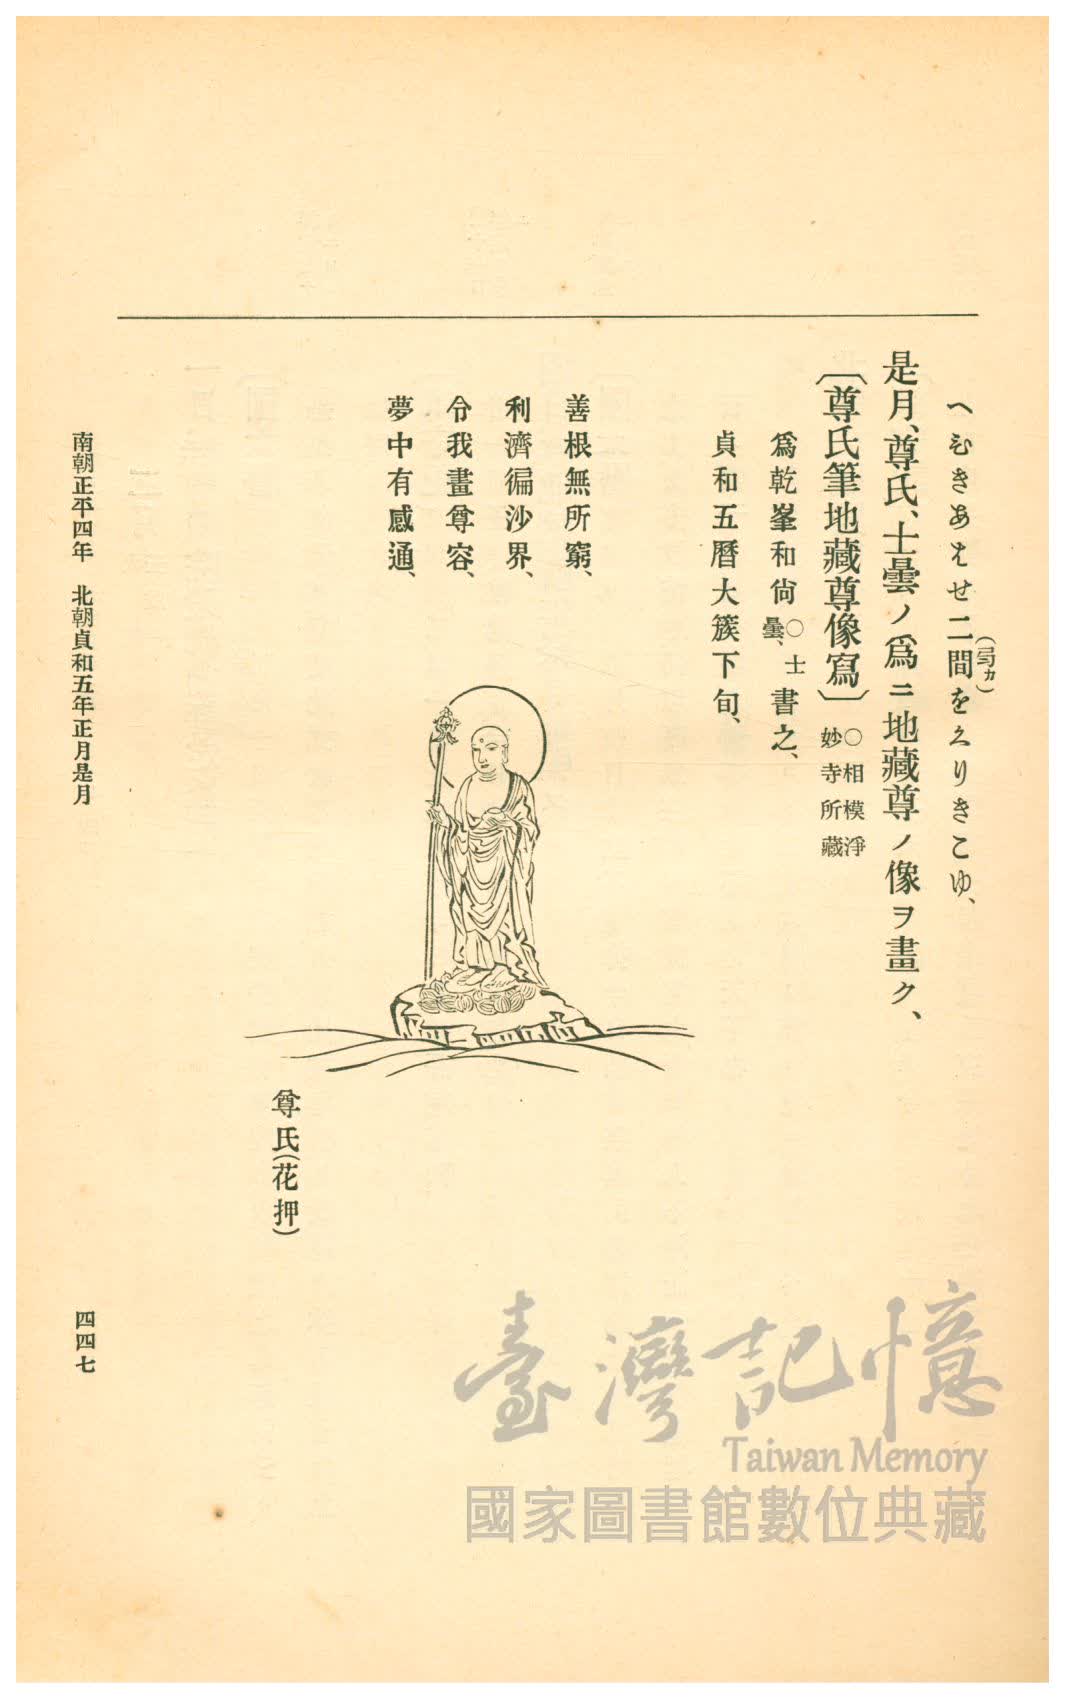 へむきあはせ二間をえりきこゆ、
是月、尊氏、士曇ノ爲ニ地藏尊ノ像ヲ畫ク、
〔尊氏筆地藏尊像寫〕 ○相模淨妙寺所藏
爲乾峯和尙 ○士曇、 書之、
貞和五曆大簇下旬、
善根無所窮、
利濟徧沙界、
令我畫尊容、
夢中有感通、
尊氏(花押)
南朝正平四年 北朝貞和五年正月是月
四四七
臺灣記憶
Taiwan Memory
國家圖書館數位典藏